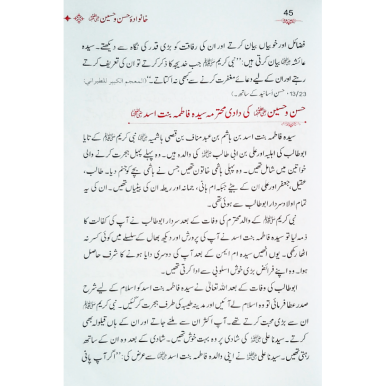 45
خانوادۂ حسن و حسین ﷠
فضائل اور خوبیاں بیان کرتے اور ان کی رفاقت کو بڑی قدر کی نگاہ سے دیکھتے۔ سیدہ
عائشہ ﷞ بیان کرتی ہیں: ’’نبی کریم ﷺ جب خدیجہ کا ذکر کرتے تو ان کی تعریف کرتے
رہتے اور ان کے لیے دعائے مغفرت کرنے سے بھی نہ اکتاتے۔‘‘ (المعجم الکبیر للطبرانی:
13/23، حسن اسنادہ کے ساتھ۔)
حسن و حسین ﷠ کی دادی محترمہ سیدہ فاطمہ بنت اسد ﷞
سیدہ فاطمہ بنت اسد بن ہاشم بن عبد مناف بن قصی ہاشمیہ ﷞ نبی کریم ﷺ کے تایا
ابوطالب کی اہلیہ اور علی بن ابی طالب ﷜ کی والدہ ہیں۔ وہ پہلے پہل ہجرت کرنے والی
خواتین میں شامل تھیں۔ وہ پہلی ہاشمی خاتون تھیں جس نے ہاشمی بچے کو جنم دیا۔ طالب،
عقیل، جعفر اور علی ان کے بیٹے جبکہ ام ہانی، جمانہ اور ریطہ ان کی بیٹیاں تھیں۔ ان کی یہ
تمام اولاد سردار ابوطالب سے ہوئی تھی۔
نبی کریم ﷺ کے والد محترم کی وفات کے بعد سردار ابوطالب نے آپ کی کفالت کا
ذمہ لیا تو سیدہ فاطمہ بنت اسد نے آپ کی پرورش اور دیکھ بھال کے سلسلے میں کوئی کسر نہ
اٹھا رکھی۔ یوں انھیں سیدہ ام ایمن کے بعد آپ کی دوسری دایا ہونے کا شرف حاصل
ہوا۔ وہ اپنے فرائض بڑی خوش اسلوبی سے ادا کرتی تھیں۔
ابوطالب کی وفات کے بعد اللہ تعالیٰ نے سیدہ فاطمہ بنت اسد کو اسلام کے لیے شرح
صدر عطا فرمائی تو وہ اسلام لے آئیں اور مدینہ طیبہ کی طرف ہجرت کر گئیں۔ نبی کریم ﷺ
ان سے بڑی محبت کرتے تھے۔ آپ اکثر ان سے ملنے جاتے اور ان کے ہاں قیلولہ بھی
کرتے۔ سیدنا علی ﷜ کی شادی پر وہ بہت خوش تھیں۔ شادی کے بعد وہ ان کے ساتھ
رہتی تھیں۔ سیدنا علی ﷜ نے اپنی والدہ فاطمہ بنت اسد ﷞ سے عرض کی: ’’اگر آپ پانی